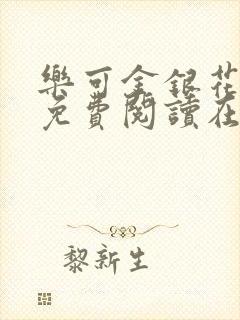 樂可金銀花
免費閱讀在
黎新生